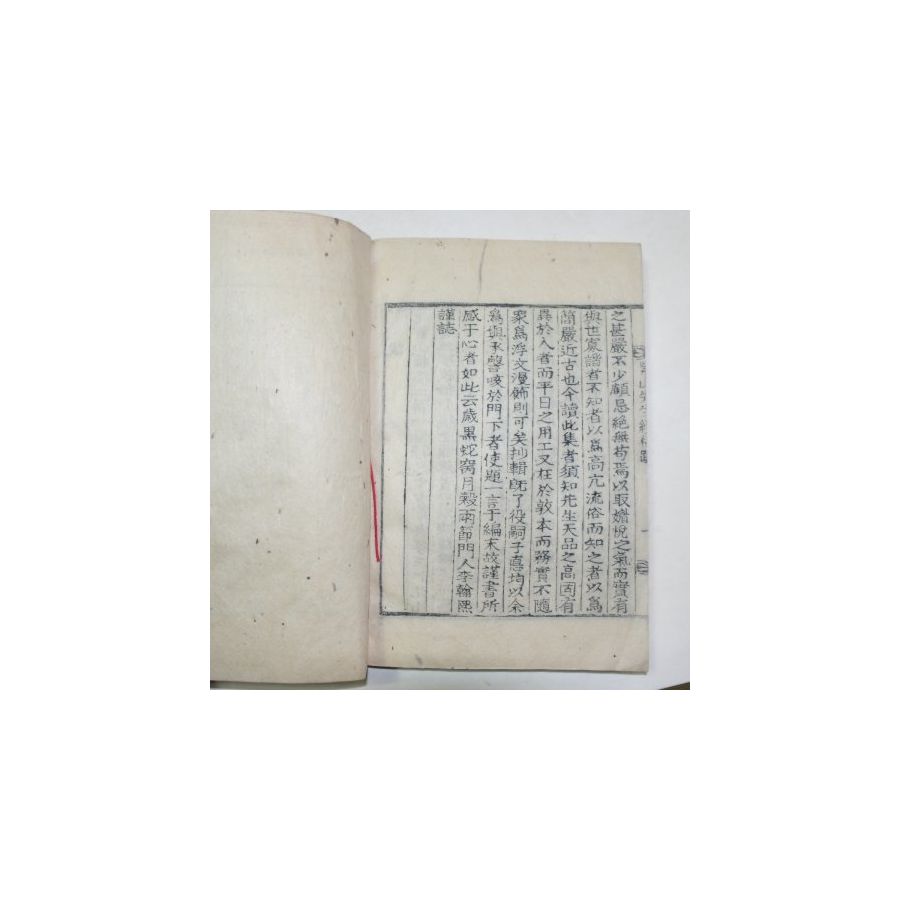 之甚嚴不少顧忌絶無苟焉以取媚悅之氣而實有
與世寡諧者不知者以爲高亢流俗而知之者以爲
簡嚴近古也今讀此集者須知先生天品之高固有
異於人者而平日之用工又在於敦本而務實不隨
衆爲浮文漫飾則可矣抄輯旣了役嗣子惪均以余
爲與承謦咳於門下者使題一言于編末故謹書所
感于心者如此云歲黑蛇窩月穀雨節門人李翰熙
謹誌